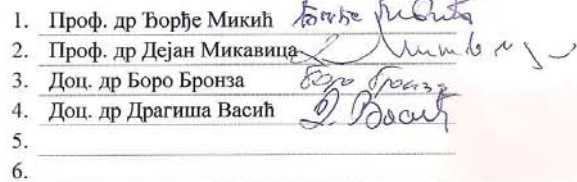 1. Проф. др Ђорђе Микић Ђорђе Микић
2. Проф. др Дејан Микавица
3. Доц. др Боро Бронза Боро Бронза
4. Доц. др Драгиша Васић Д. Васић
5.
6.